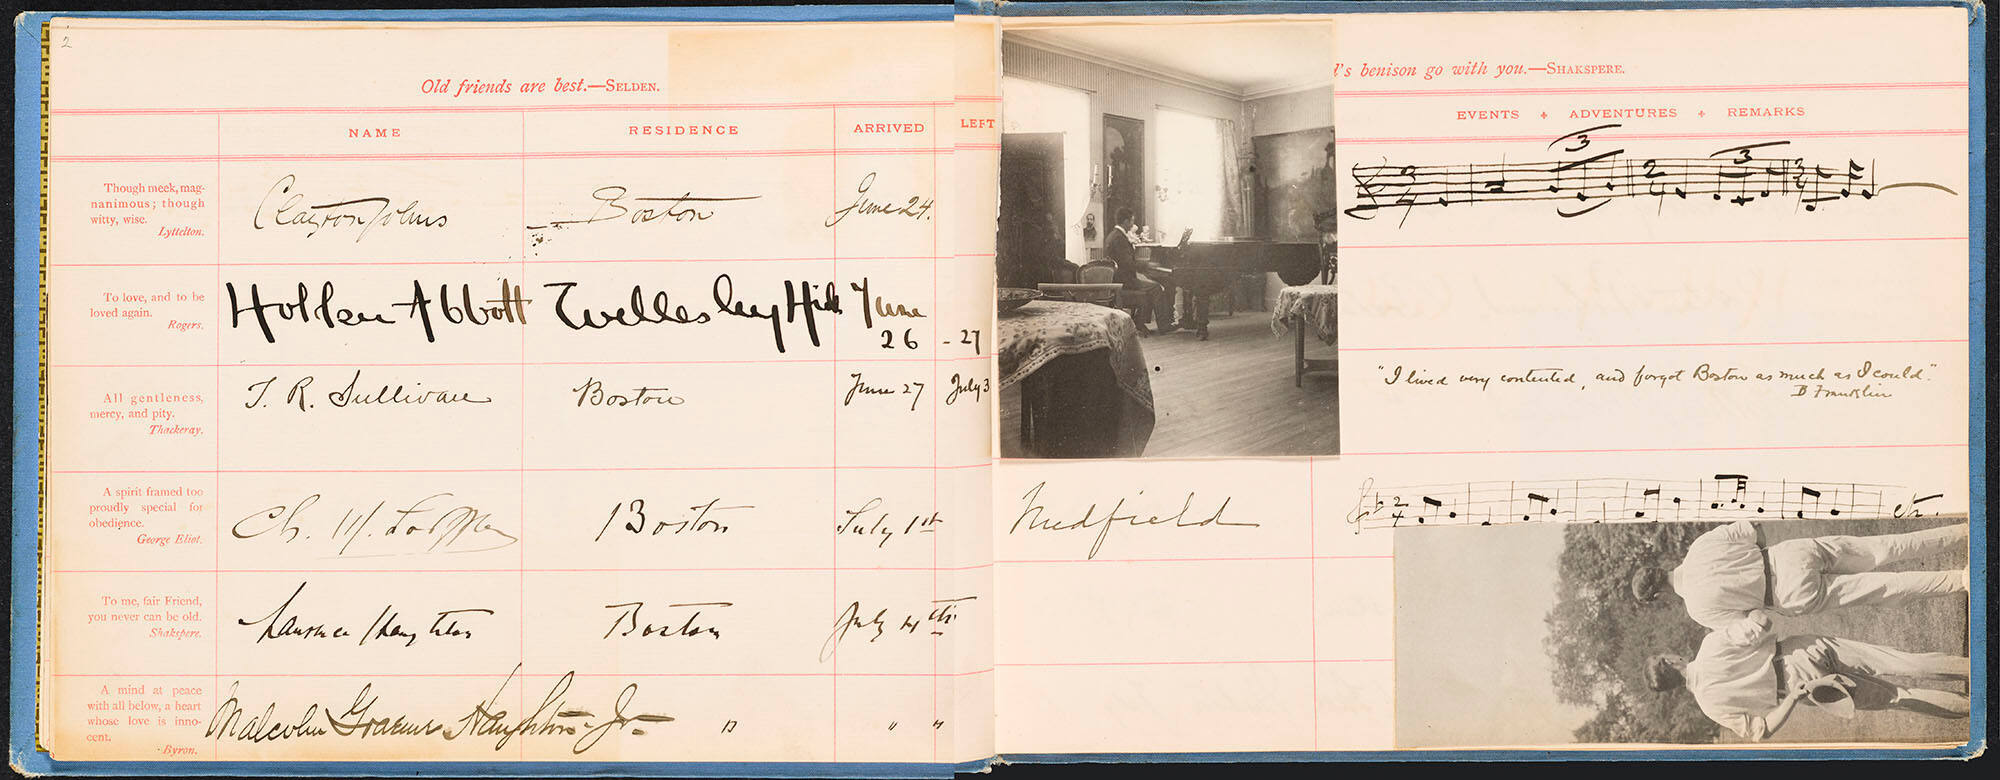 2
Old friends are best.—SELDEN.
NAME RESIDENCE ARRIVED LEFT
Though meek, mag-
nanimous; though
witty, wise.
Lyttelton.
Clayton Johns Boston June 24.
To love, and to be
loved again.
Rogers.
Holker Abbott Wellesley Hills June
26 - 27
All gentleness,
mercy, and pity.
Thackeray.
T. R. Sullivan Boston June 27 July 3
A spirit framed too
proudly special for
obedience.
George Eliot.
Ch. M. Loeffler Boston July 1st
To me, fair Friend,
you never can be old.
Shakspere.
Boston July 4th
A mind at peace
with all below, a heart
whose love is inno-
cent.
Byron.
Malcolm Graeme Haughton Jr. " " "
d's benison go with you.—SHAKSPERE.
EVENTS + ADVENTURES + REMARKS
3
3 2 3 3
4 4 4
"I lived very contented, and forgot Boston as much as I could."
B Franklin
Medfield
2
4 etc.